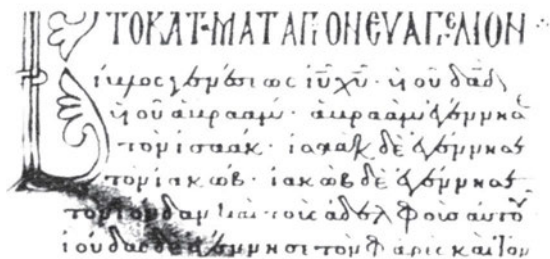 ΤΟ ΚΑΤ ΜΑΤ ΑΓΙΟΝ ΕΥΑΓΓΕΛΙΟΝ
ίβλος γενέσεως ιῡ χῡ · ὑοῦ δαδ
ὑοῦ ἀβραάμ · ἀβραὰμ ἐγέννησε
τὸν ἰσαάκ · ἰσαὰκ δὲ ἐγέννησε
τὸν ἰακώβ · ἰακὼβ δὲ ἐγέννησε
τὸν ἰούδαν καὶ τοὺς ἀδελφοὺς αὐτοῦ
ἰούδας δὲ ἐγέννησε τὸν φαρὲς καὶ τὸν